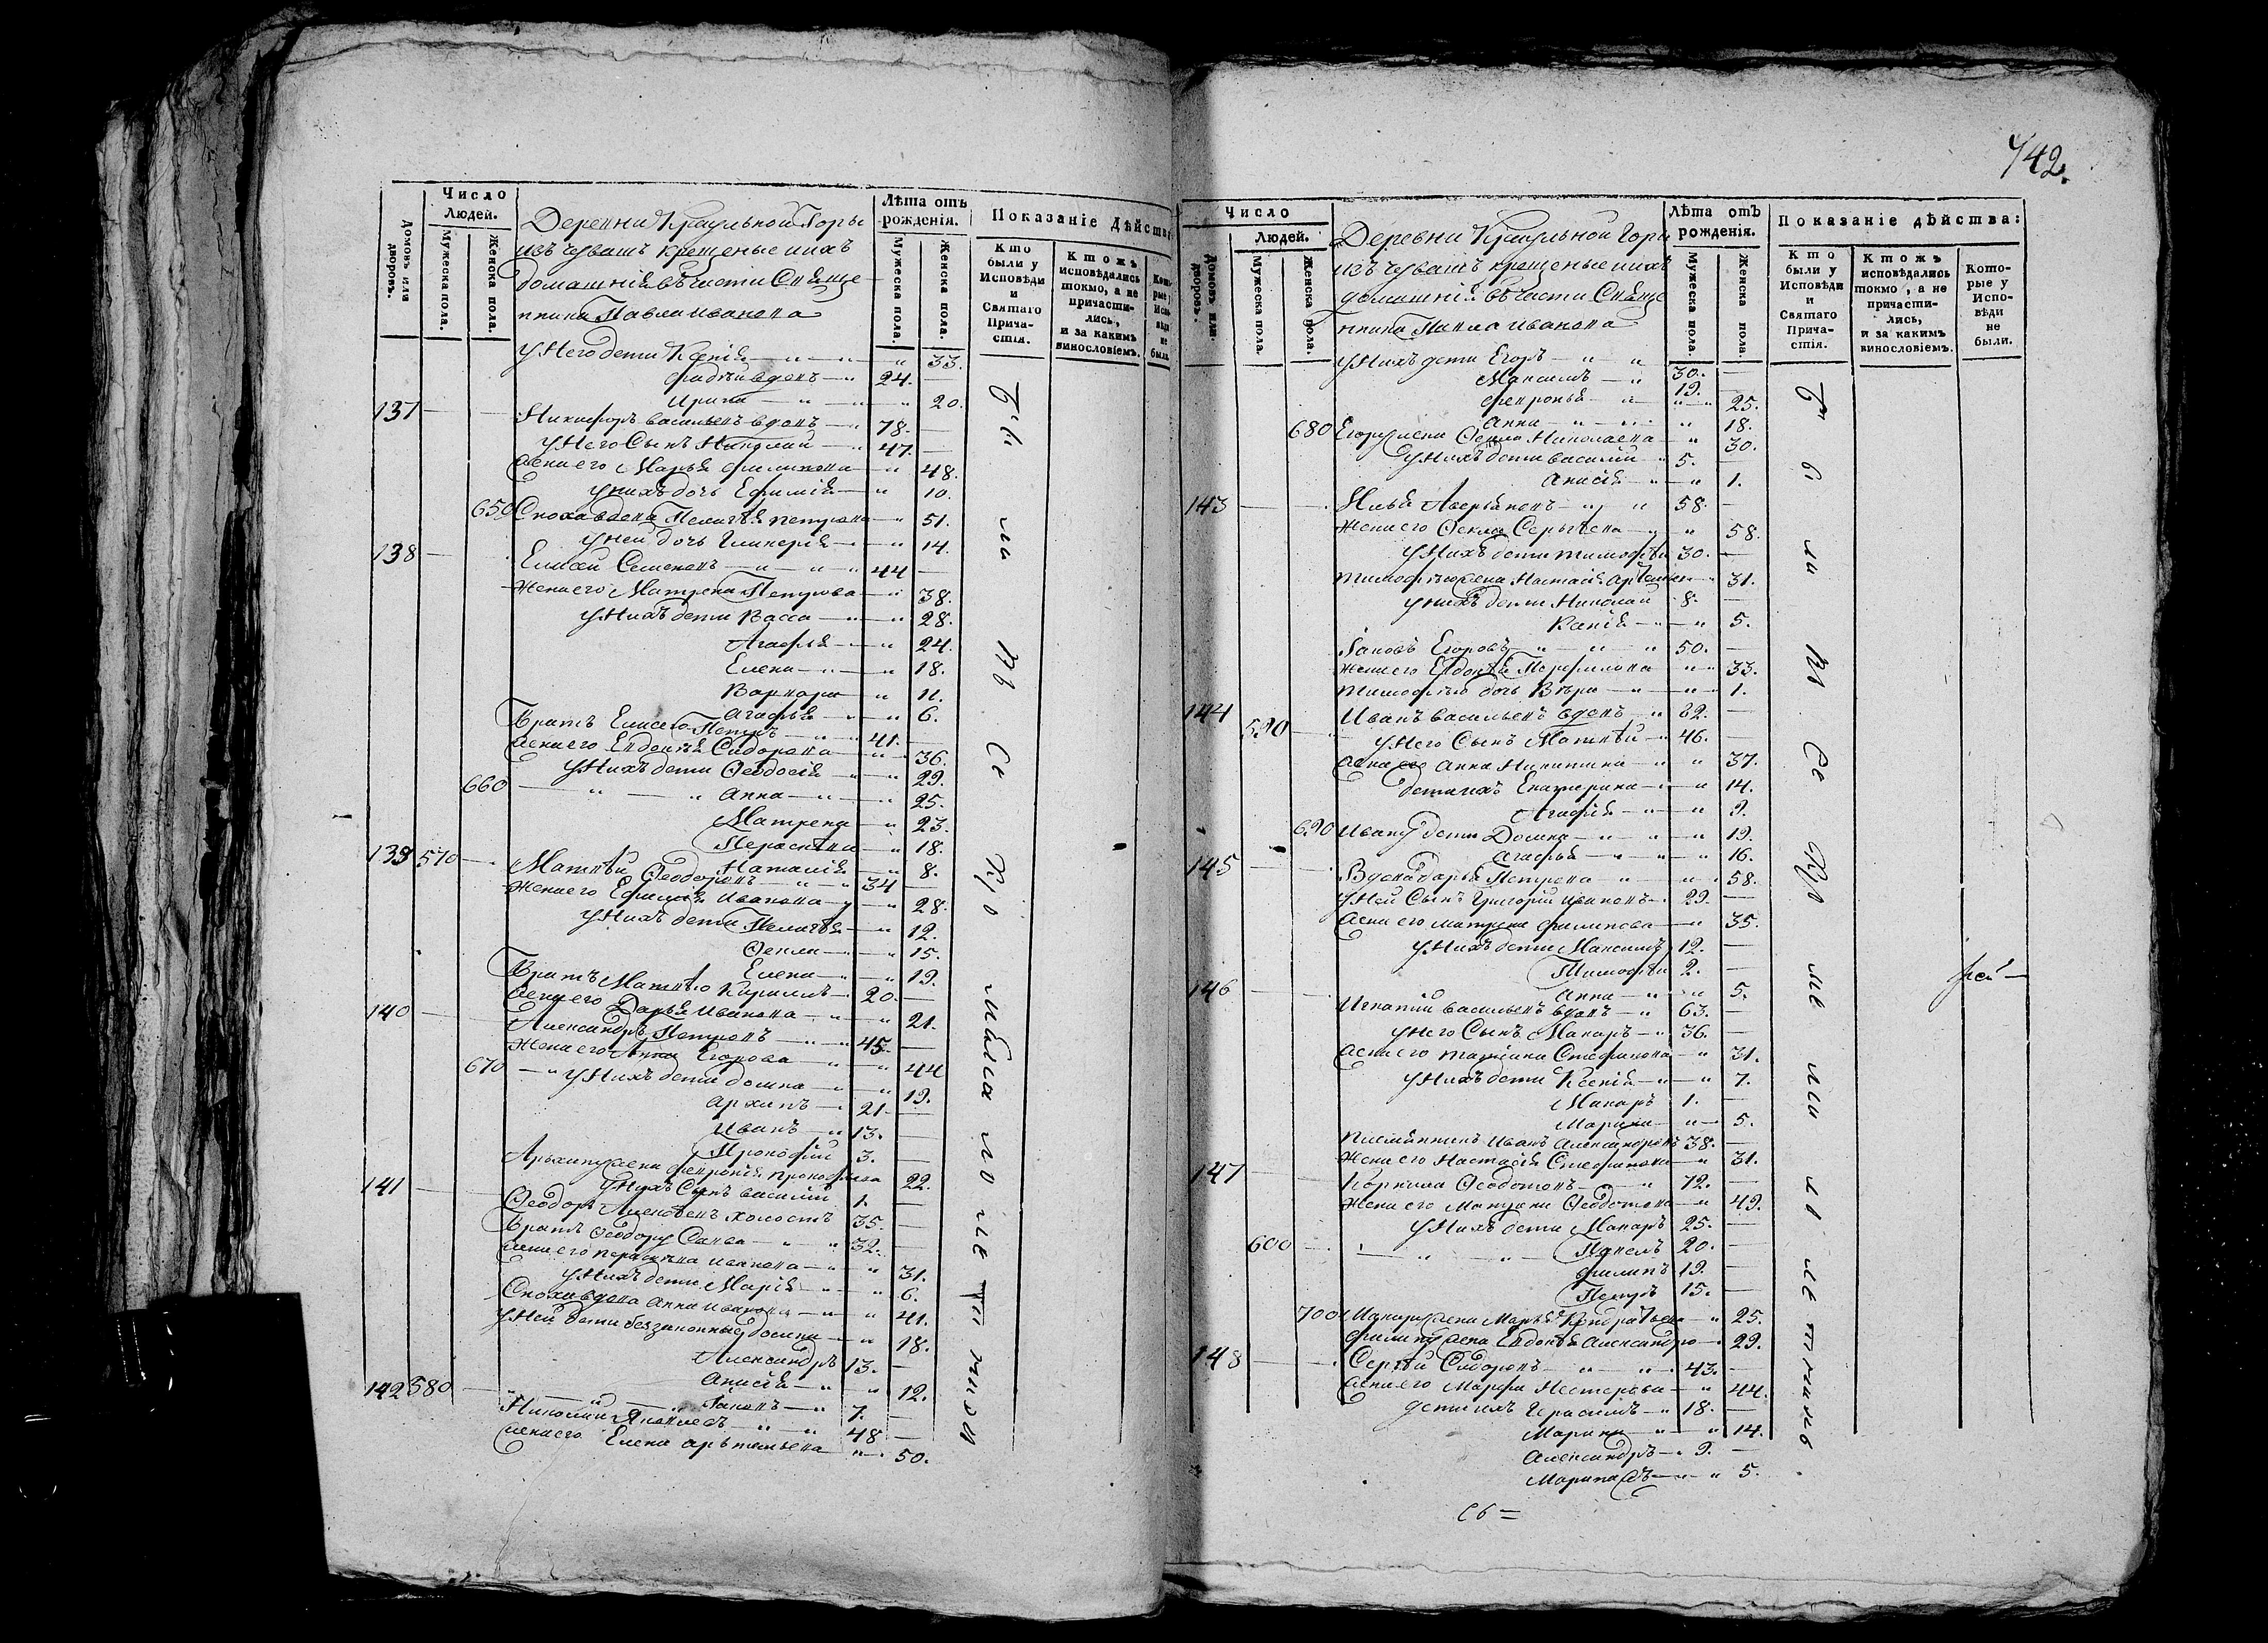 Домовъ или дворовъ.
Число Людей.
Мужеска пола.
Женска пола.
Деревни Краульной Горы
изъ чувашъ крещеные ихъ
домашніе въ части Священ-
ника Павла Иванова
Лѣта отъ рожденія.
Мужеска пола.
Женска пола.
Показаніе Дѣйства
Кто были у Исповѣди и Святаго Прича-стія.
Ктожъ исповѣдались токмо, а не причасти-лись, и за какимъ винословіемъ.
Кото-рые у Испо-вѣди не были.
У Него дети Ксенія 33.
24.
Ирина 20.
137 Никифоръ Васильевъ вдовъ 78.
У Него Сынъ Николай 47.
Жена его Марья Филипова 48.
У нихъ дочь Ефимія 10.
650 Сноха вдова Пелагѣя Петрова 51.
У ней дочь Гликерія 14.
138 Елисей Семеновъ 44
Жена его Матрена Петрова 38.
У Нихъ дети Васса 28.
Агафья 24.
Елена 18.
Варвара 11.
Агафья 6.
Братъ Елисею Петръ 41.
Жена его Евдокія Сидорова 36.
У Нихъ дети Ѳеодосія 29.
660 Анна 25.
Матрена 23.
Парасковья 18.
Наталія 8.
139 570 Матвѣй Ѳеодоровъ 34
Жена его Ефимія Иванова 28.
У Нихъ дети Пелагѣя 12.
Ѳекла 15.
Елена 19.
Братъ Матвѣю Кирилъ 20.
Жена его Дарья Иванова 21.
140 Александръ Петровъ 45.
Жена его Анна Егорова 44
670 У Нихъ дети Домна 19.
Архипъ 21.
Иванъ 13.
Прокофій 3.
Архипу жена Февронія Прокофьева 22.
У Нихъ Сынъ Василій 1.
141 Ѳеодоръ Алексѣевъ холостъ 35.
Братъ Ѳеодору Савва 32.
Жена его Парасковья Иванова 31.
У Нихъ дети Марія 6.
Сноха вдова Анна Иванова 41.
У Ней дети беззаконные Домна 18.
Александръ 13.
Анисія 12.
142 580 Іаковъ 7.
Николай Яковлевъ 48
Жена его Елена Артемьева 50.
Были всѣ
742.
Домовъ или дворовъ.
Число Людей.
Мужеска пола.
Женска пола.
Деревни Краульной Горы
изъ чувашъ крещеные ихъ
домашніе въ части Священ
ника Павла Иванова
Лѣта отъ рожденія.
Мужеска пола.
Женска пола.
Показаніе дѣйства:
Кто были у Исповѣди и Святаго Прича-стія.
Ктожъ исповѣдались токмо, а не причасти-лись, и за какимъ винословіемъ.
Кото-рые у Испо-вѣди не были.
У Нихъ дети Егоръ 30.
Максимъ 19.
Февронья 25.
Анна 18.
680 Егору жена Ѳекла Николаева 30.
У Нихъ дети Василій 5.
Анисія 1.
143 Илья Аверьяновъ 58.
Жена его Ѳекла Сергѣева 58.
У Нихъ дети Тимофѣй 30.
Тимофѣю жена Настасія 31.
У нихъ дети Николай 8.
Ксенія 5.
Іаковъ Егоровъ 50.
Жена его Евдокія Перфилова 33.
Тимофѣю дочь Вѣра 1.
144 Иванъ Васильевъ вдовъ 82.
590 У Него Сынъ Матвѣй 46.
Жена его Анна Никитина 37.
Дети ихъ Екатерина 14.
Агафія 9.
690 Ивану дети Домна 19.
Агафья 16.
145 Вдова Дарья Петрова 58.
У Ней Сынъ Григорій Ивановъ 29.
Жена его Матрена Филипова 35.
У Нихъ дети Максимъ 12.
Тимофѣй 2.
Анна 5.
146 Игнатій Васильевъ вдовъ 63.
У Него Сынъ Макаръ 36.
Жена его Татіана Стефанова 31.
У Нихъ дети Ксенія 7.
Макаръ 1.
Марина 5.
Племянникъ Иванъ Александровъ 38.
Жена его Настасія Стефанова 31.
147 Корнила Ѳедотовъ 72.
Жена его Матрена Ѳедотова 49.
У Нихъ дети Макаръ 25.
600 Павелъ 20.
Филипъ 19.
Петръ 15.
700 Макару жена Марья Кондратьева 25.
Филипу жена Евдокѣя Александро 29.
148 Сергѣй Сидоровъ 43.
Жена его Марфа Нестерова 44.
Дети ихъ Герасимъ 18.
Марина 14.
Александръ 9.
Марина 5.